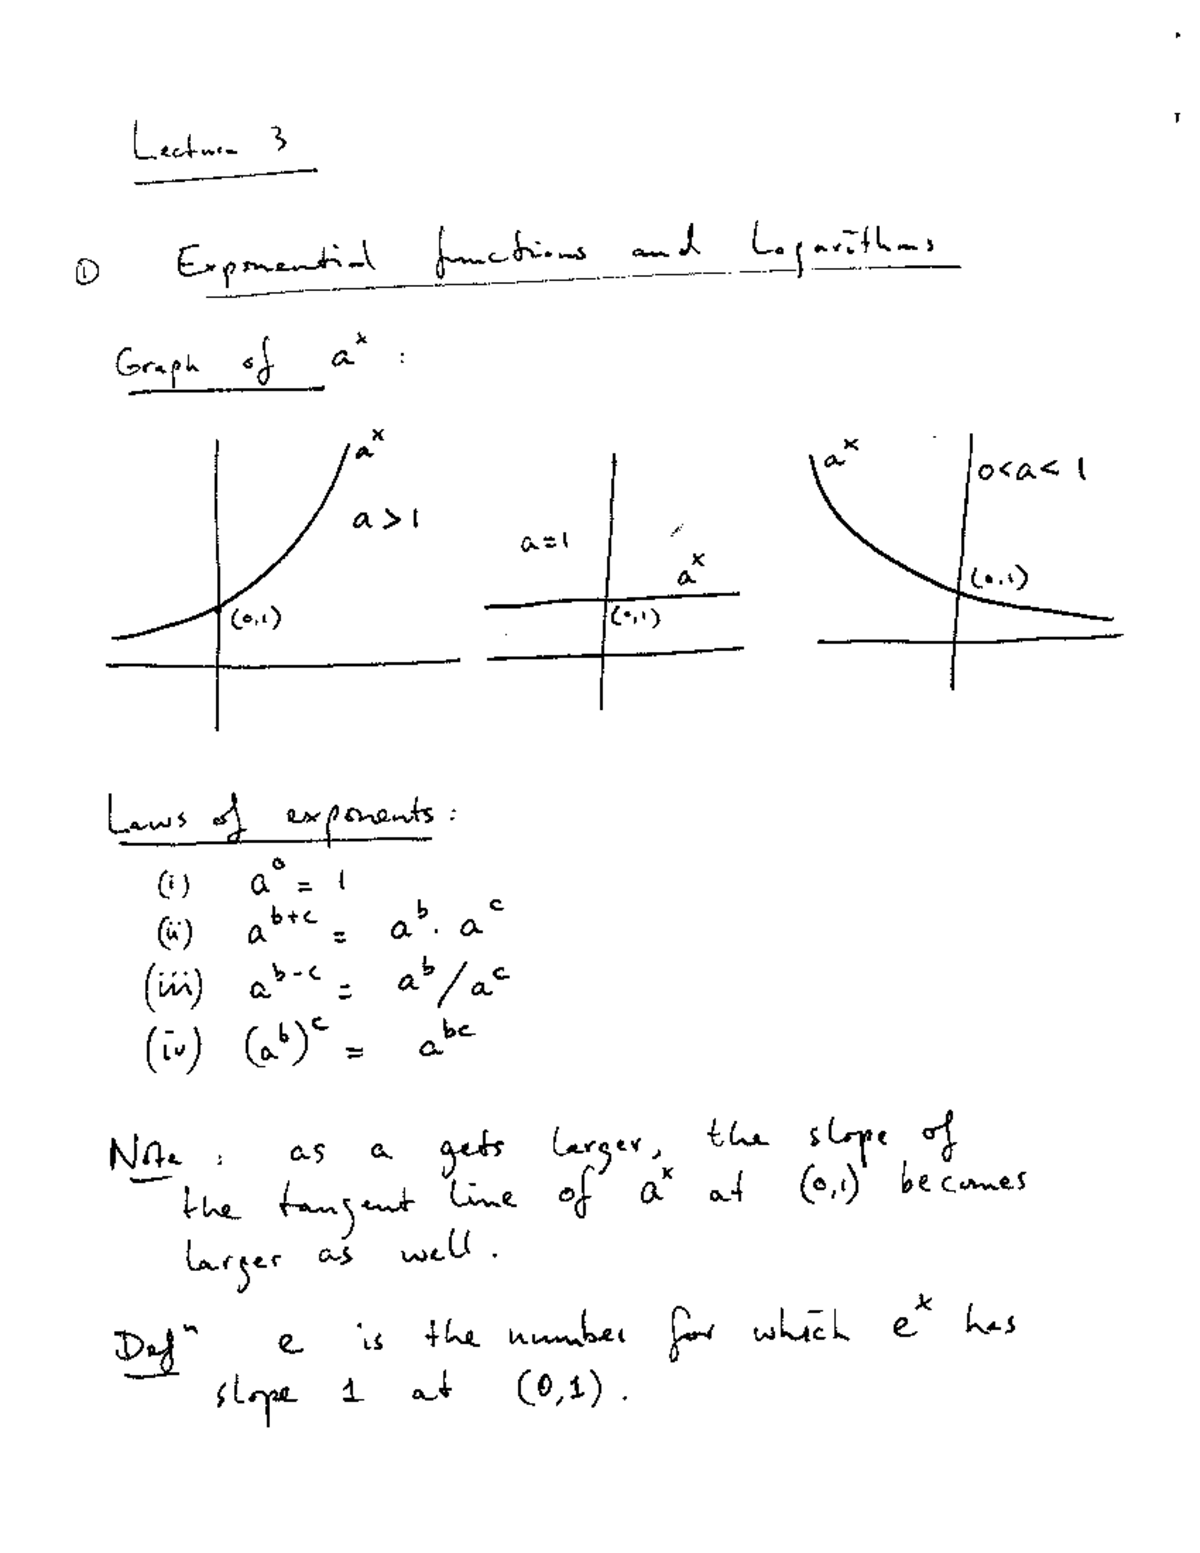 Lecture 3
① Exponential functions and Logarithms
Graph of aˣ :
aˣ
a > 1
(0,1)
a = 1
aˣ
(0,1)
aˣ
0 < a < 1
(0,1)
Laws of exponents :
(i) a⁰ = 1
(ii) a^{b+c} = a^b · a^c
(iii) a^{b-c} = a^b / a^c
(iv) (a^b)^c = a^{bc}
Note : as a gets larger, the slope of
the tangent line of aˣ at (0,1) becomes
larger as well.
Defⁿ e is the number for which eˣ has
slope 1 at (0,1).